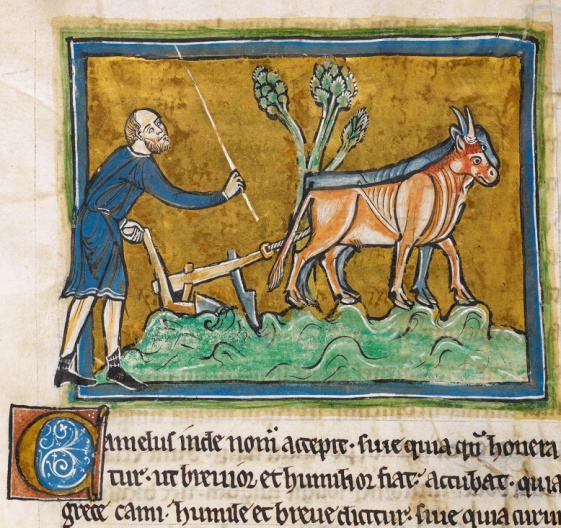 Camelus inde nom̄ accepit · siue quia qn̄ honera
tur · ut breuior et humilior fiat · accubat · quia
grece cami · humile et breue dicitur · siue quia